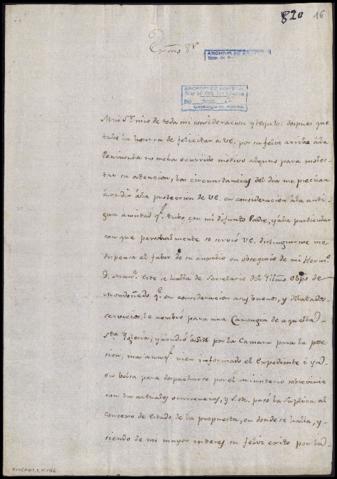 820 16
Excmo Sr
Muy Sr. mio de toda mi consideracion y respeto: despues que
tube la honrra de felicitar a VE. por su feliz arribo à la
Peninsula no me ha ocurrido motivo alguno para moles-
tar su atencion, las circunstancias del dia me precisan
à acudir àla proteccion de VE. en consideracion àla anti-
gua amistad qe. tubo con mi difunto Padre, y àla particular
con que personalmente se sirvió VE. distinguirme me
dispensará el fabor de su auxilio en obsequio de mi Herno.
D. Este se halla de Secretario del Ylmo. Obpo. de
Mondoñedo qe. en consideracion à sus buenos, y dilatados
servicios, le nombró para una Canongia de aquella
Sta. Yglesia, y acudió à SM. por la Camara para la
cion, mas aunqe. bien informado el Expediente è
para despacharse por el ministerio
las actuales ocurrencias, y S.M. pasó la Suplica al
Consexo de Estado de la propuesta, en donde se halla, y
siendo de mi mayor interes su feliz exito por